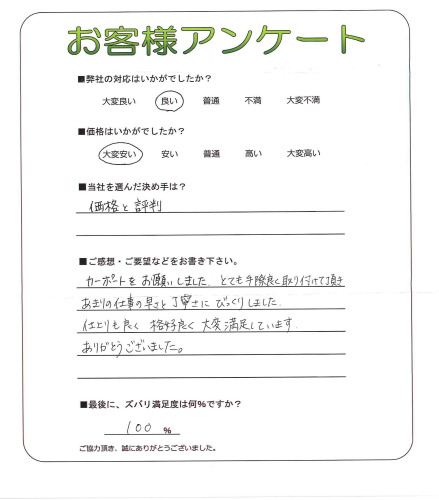 お客様アンケート
■弊社の対応はいかがでしたか？
大変良い 良い 普通 不満 大変不満
■価格はいかがでしたか？
大変安い 安い 普通 高い 大変高い
■当社を選んだ決め手は？
価格と評判
■ご感想・ご要望などをお書き下さい。
カーポートをお願いしました。とても手際良く取り付けて頂き
あまりの仕事の早さと丁寧さにびっくりしました。
仕上りも良く 格好良く 大変満足しています。
ありがとうございました。
■最後に、ズバリ満足度は何%ですか？
100 %
ご協力頂き、誠にありがとうございました。